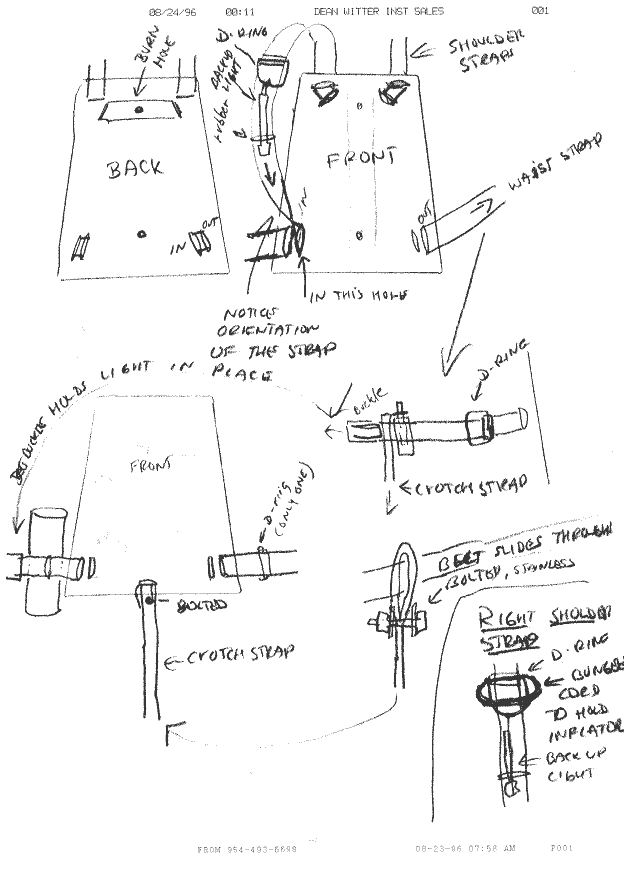 08/24/96 00:11 DEAN WITTER INST SALES 001
BURN
HOLE
BACK
IN
OUT
D-RING
BACKUP
LIGHT
rubber
SHOULDER
STRAPS
FRONT
IN
OUT
WAIST STRAP
IN THIS HOLE
NOTICE
ORIENTATION
OF THE STRAP
BELT BUCKLE HOLDS LIGHT IN PLACE
Buckle
D-RING
CROTCH STRAP
FRONT
D-ring
(ONLY ONE)
BOLTED
CROTCH STRAP
BELT SLIDES THROUGH
BOLTED, STAINLESS
RIGHT SHOLDER
STRAP
D-RING
BUNGEE
CORD
TO HOLD
INFLATOR
BACK UP
LIGHT
FROM 954-493-5698 08-23-96 07:56 AM P001